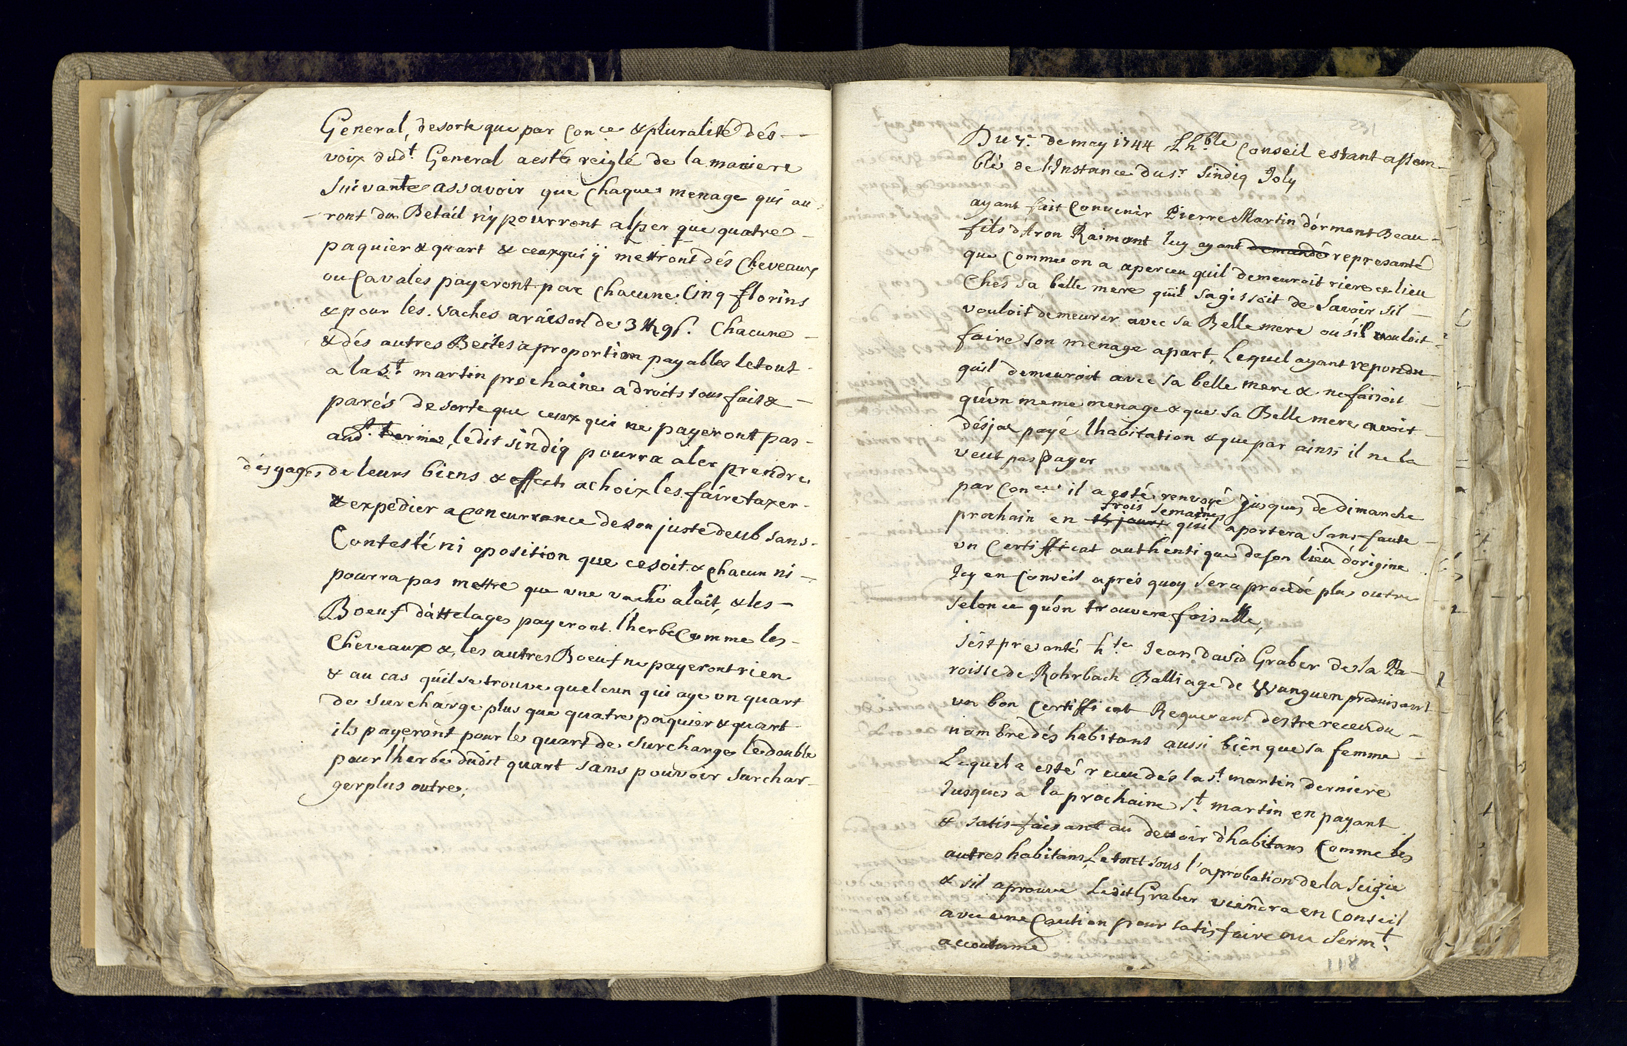 General, desorte que par con.ce & pluralité dés
voix dud.t General a esté reiglé de la maniere
suivante assavoir que chaque menage qui au-
ront du Betail n'y pourront alper que quatre
paquier & quart & ceux qui ÿ mettront dés Chevaux
ou Cavales payeront par chacune Cinq florins
& pour les vaches a raison de 3 chacune
& dés autres Bestes a proportion payables le tout
a la S.t martin prochaine a droits tous faits &
parés desorte que ceux qui ne payeront pas
aud.t terme, ledit sindiq pourra aler prendre
dés gages de leurs biens & effects a choix les faire taxer
& expedier a concurrance de son juste deub sans
Contesté ni oposition que ce soit & chacun ni
pourra pas mettre que une vache a lait, & les
Boeuf d'attelages payeront l'herbe Comme les
Cheveaux & les autres Boeuf ne payeront rien
& au cas qu'il se trouve quelcun qui aye un quart
de surcharge plus que quatre paquier & quart
ils payeront pour le quart de surcharge le double
pour l'herbe dudit quart sans pouvoir surchar-
ger plus outre;
231
Du 7.e de mey 1744 L'h.ble Conseil estant assem-
blé de l'Instance du s.r Sindiq Joly
ayant fait Convenir Pierre Martin d'ormont Beau-
fils d'Aron Raimont luy ayant demandé represanté
que comme on a aperceu quil demeuroit riere ce lieu
Ches sa belle mere quil s'agissoit de savoir sil
vouloit demeurer avec sa Belle mere ou s'il vouloit
faire son menage apart, Lequel ayant repondu
quil demeuroit avec sa belle mere & ne faisoit
qu'un meme menage & que sa Belle mere avoit
désja payé l'habitation & que par ainsi il ne la
veut pas payer
par con.ce il a esté renvoyé jusques de dimanche
trois semaines
prochain en 15 jours qu'il aportera sans faute
un Certifficat authentique de son lieu d'origine
Icy en Conseil aprés quoy sera procedé plus outre
selon ce qu'on trouvera faisable,
s'est presanté h.te Jean David Graber de la Pa-
roisse de Rohrbach Balliage de Wanguen produisant
un bon Certifficat Requerant destre receu du
nombre dés habitans aussi bien que sa femme
Lequel a esté receu dés la s.t martin derniere
Jusques a la prochaine s.t martin en payant
& satisfaisant au devoir d'habitans Comme les
autres habitans, Le tout sous l'aprobation de la Seig.ie
& s'il aprouve Ledit Graber viendra en Conseil
avec une Caution pour satisfaire au Serm.t
accoutumé
118